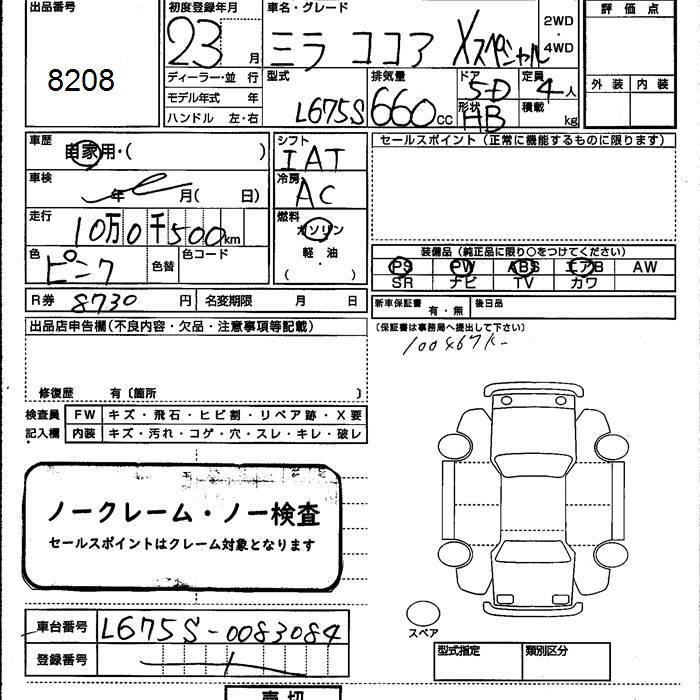 出品番号 初度登録年月 車名・グレード 評価点
8208 23 月 ミラ ココア Xスペシャル 2WD・4WD
ディーラー・並行 型式 排気量 ドア 定員 外装 内装
モデル年式 年 L675S 660cc 5-D 4人
ハンドル 左・右 形状 HB 積載 kg
車歴 自家用・( ) シフト IAT セールスポイント(正常に機能するものに限ります)
車検 年 月( 日) 冷房 AC
走行 10万0千500km 燃料 ガソリン・軽油( )
色 ピンク 色替 色コード
装備品(純正品に限り○をつけてください)
PS PW ABS エアB AW
SR ナビ TV カワ
R券 8730円 名変期限 月 日 新車保証書 有・無 後日品
出品店申告欄(不良内容・欠品・注意事項等記載) (保証書は事務局へ提出して下さい)
100467K-
修復歴 有〔箇所 〕
検査員 FW キズ・飛石・ヒビ割・リペア跡・X要
記入欄 内装 キズ・汚れ・コゲ・穴・スレ・キレ・破レ
ノークレーム・ノー検査
セールスポイントはクレーム対象となります
車台番号 L675S-0083084 スペア
登録番号 型式指定 類別区分
売切